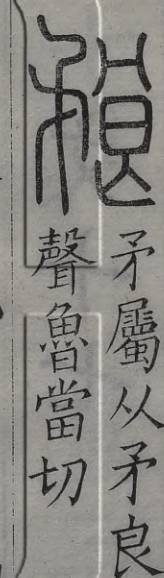 䂇
矛屬从矛良
聲魯當切